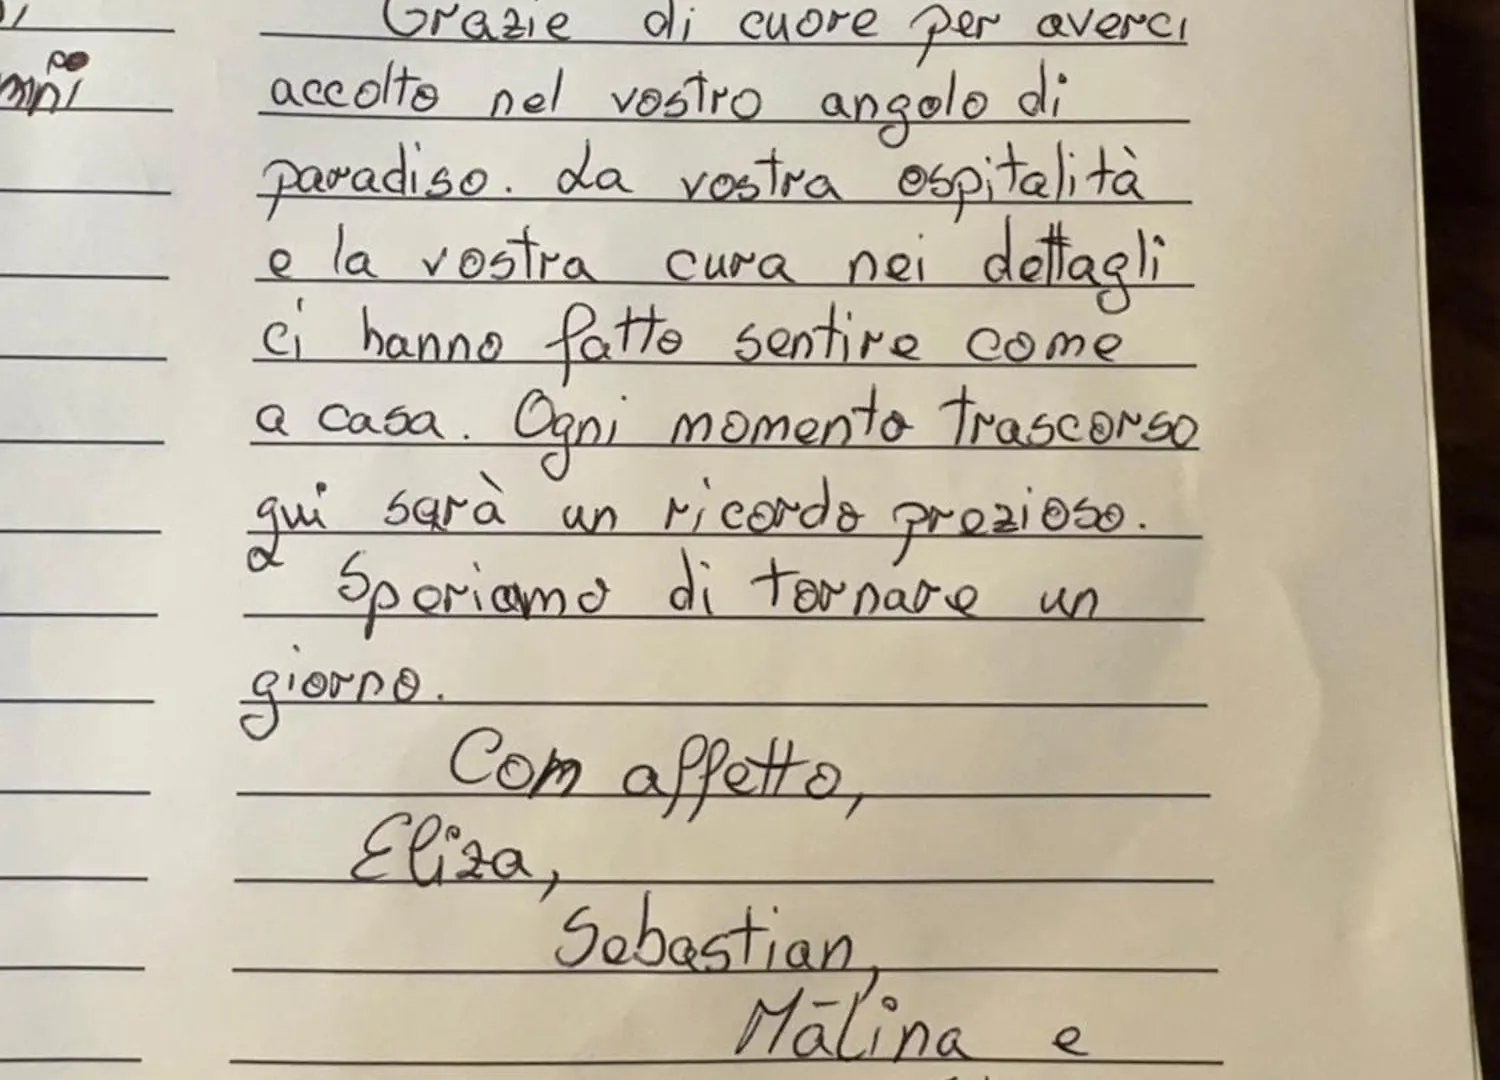 Grazie di cuore per averci
accolto nel vostro angolo di
paradiso. La vostra ospitalità
e la vostra cura nei dettagli
ci hanno fatto sentire come
a casa. Ogni momento trascorso
qui sarà un ricordo prezioso.
Speriamo di tornare un
giorno.
Com affetto,
Eliza,
Sebastian,
Mālina e